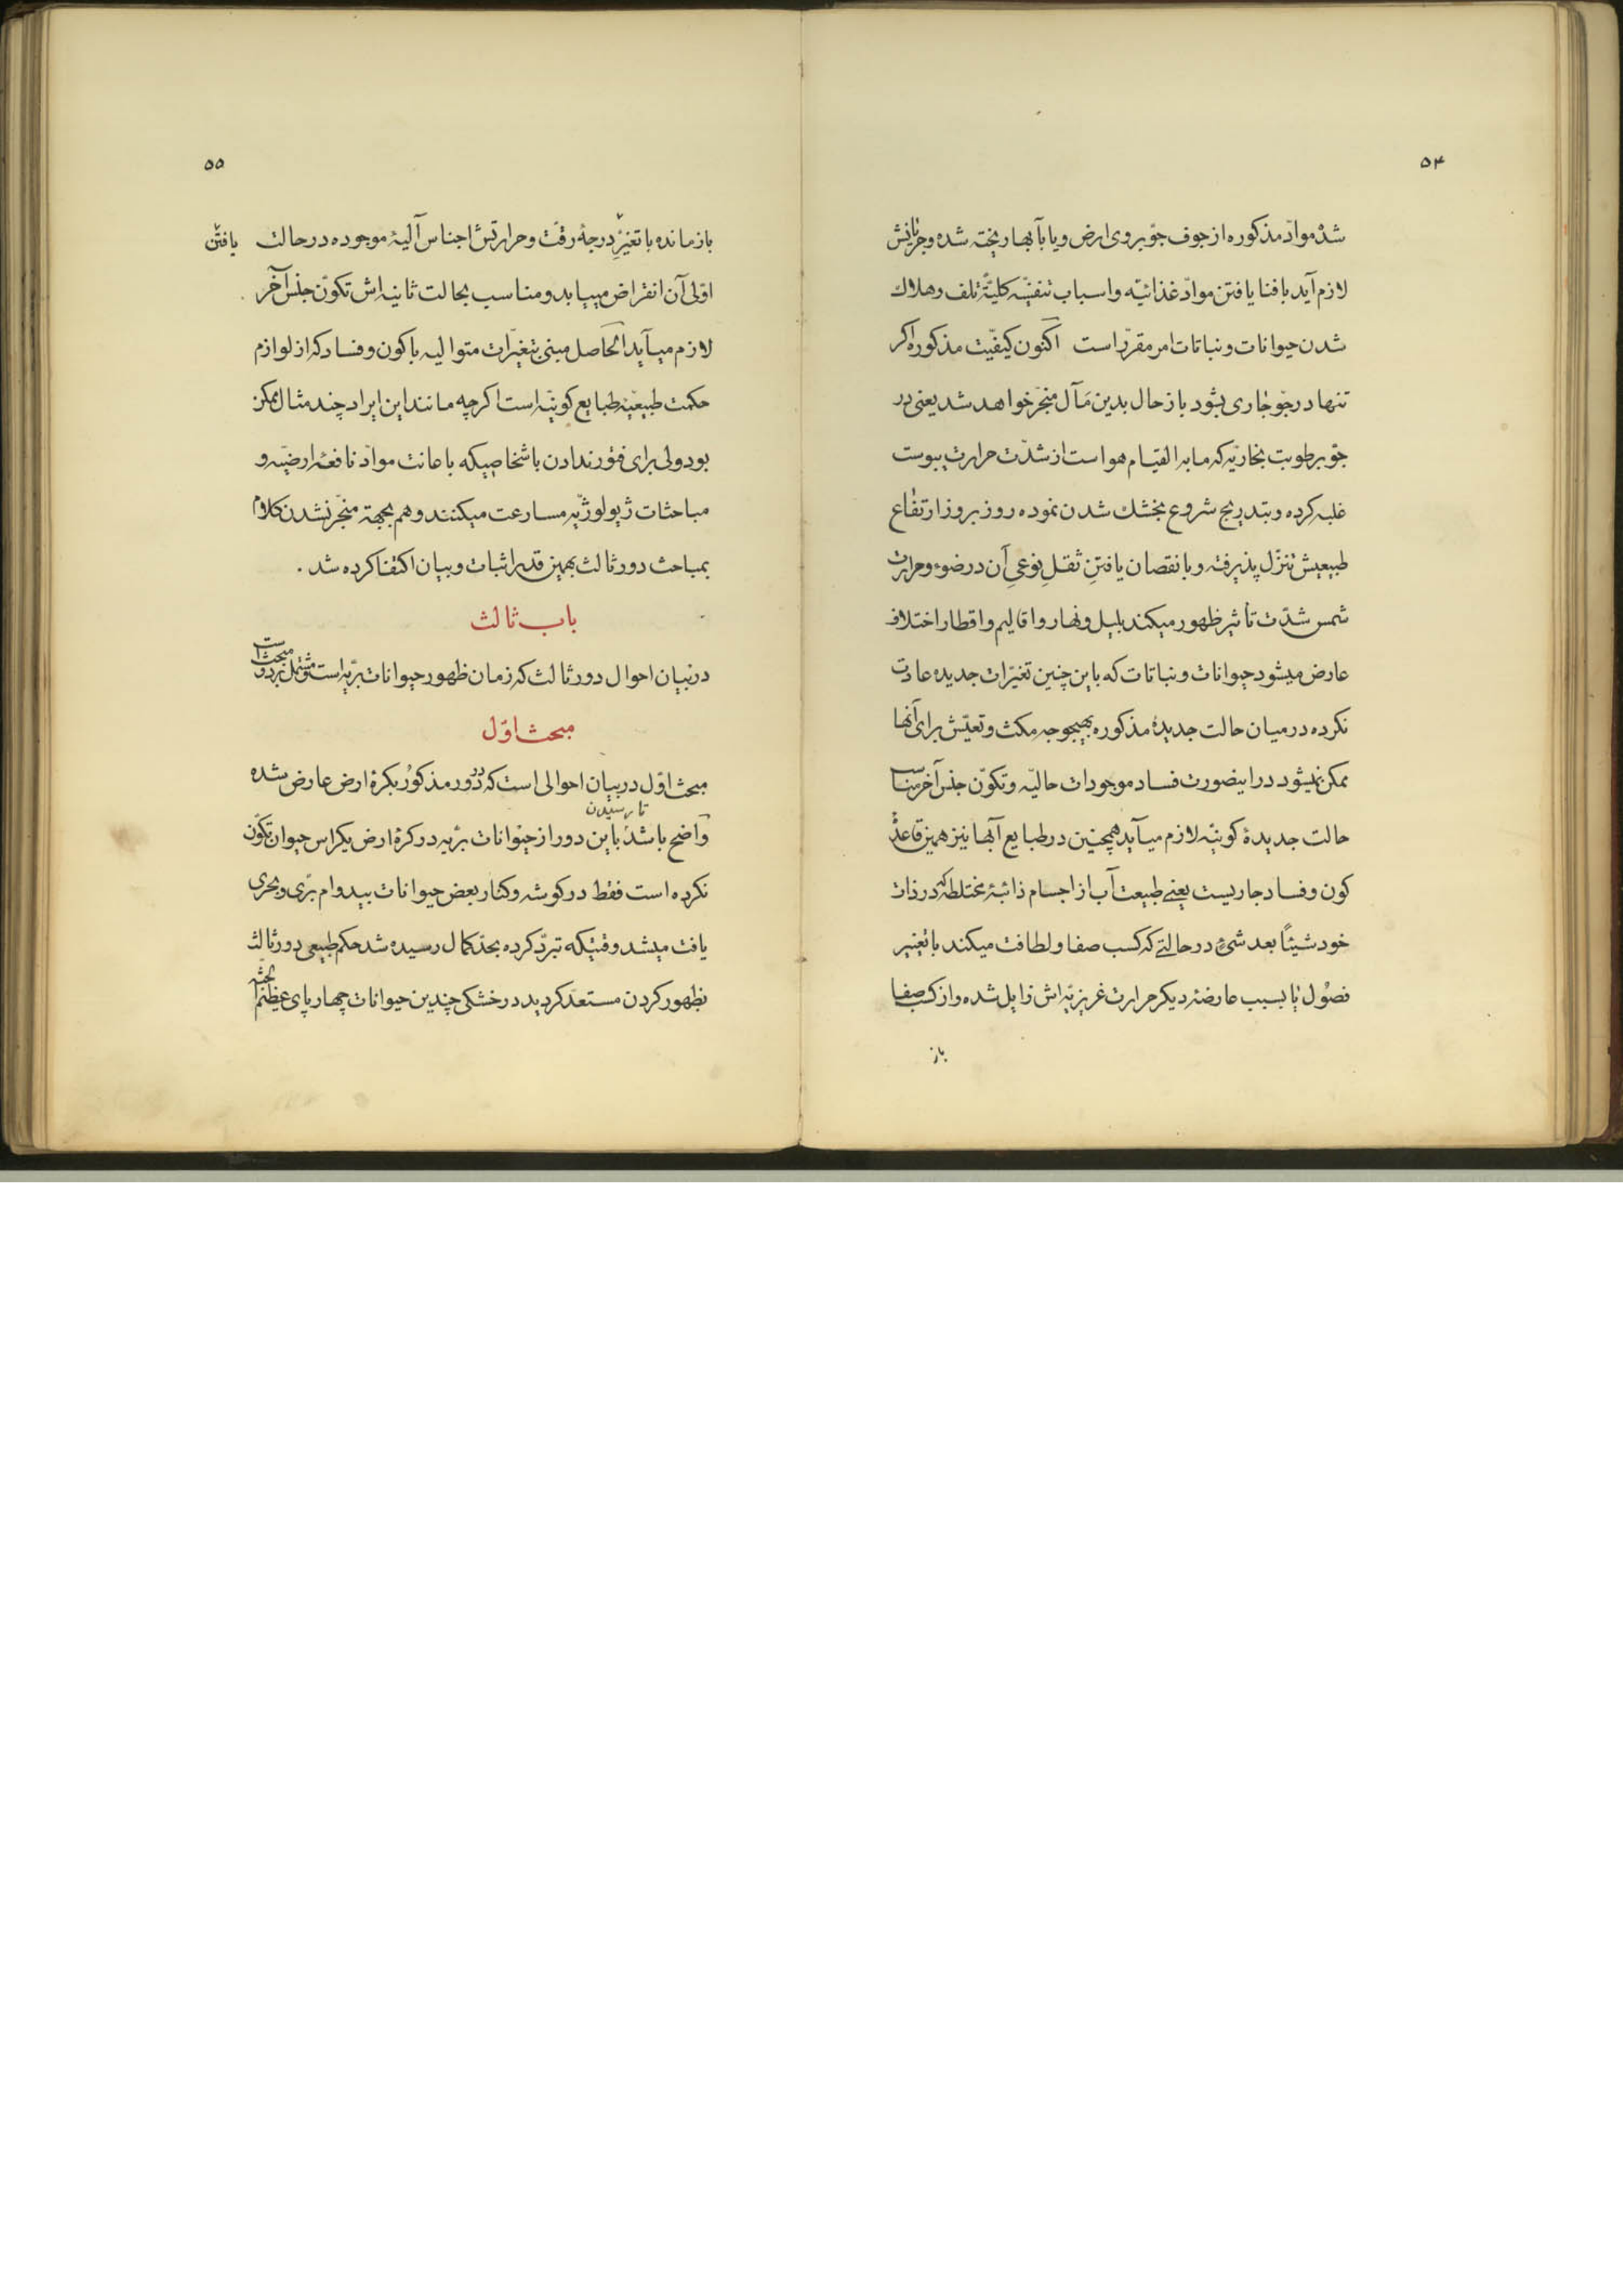 ۵۴
شده موادّ مذکوره از جوف جوّ بروی ارض و یا بآبها ریخته شده و جریانش
لازم آید با فنا یافتن موادّ غذائیّه و اسباب تنفّسیّه کلیّةً تلف و هلاك
شدن حیوانات و نباتات امر مقرّر است اکنون کیفیّت مذکوره اکر
تنها در جوّ جاری بشود باز حال بدین مَآل منجّر خواهد شد یعنی در
جوّ برطوبت بخاریّه که مابه القیام هواست از شدّت حرارت یبوست
غلبه کرده و بتدریج شروع بخشك شدن نموده روز بروز ارتفاع
طبیعیش تنزّل پذیرفته و با نقصان یافتنِ ثقلِ نوعیِ آن در ضوء و حرارت
شمس شدّت تأثیر ظهور میکند بلیل و نهار و اقالیم و اقطار اختلاف
عارض میشود حیوانات و نباتات که باین چنین تغیّرات جدیده عادت
نکرده در میان حالت جدیدۀ مذکوره بهیچوجه مکث و تعیّش برای آنها
ممکن نمیشود در اینصورت فساد موجودات حالیّه و تکوّن جنس آخر مناسب
حالت جدیدۀ کونیّه لازم میآید همچنین در طبایع آبها نیز همین قاعدۀ
کون و فساد جاریست یعنی طبیعت آب از اجسام ذائبۀ مختلطه که در ذات
خود شیئًا بعد شیءٍ در حالتی که کسب صفا و لطافت میکند با تغییر
فصُول یا بسبب عارضۀ دیکر حرارت غریزیّه اش زایل شده و از کسب صفا
باز
۵۵
بازمانده با تغیّرِ درجۀ رقّت و حرارتش اجناس آلیۀ موجوده در حالت یافتن
اوّلی آن انقراض مییابد و مناسب بحالت ثانیه اش تکوّن جنس آخر
لازم میآید الحاصل مبنی بتغیّرات متوالیه با کون و فساد که از لوازم
حکمت طبیعیّۀ طبایع کونیّه است اکرچه مانند این ایراد چند مثال ممکن
بود ولی برای فتور ندادن باشخاصیکه باعانت موادّ نافعۀ ارضیّه و
مباحثات ژیولوژیّه مسارعت میکنند و هم بجهة منجّر نشدن کلام
بمباحث دور ثالث بهمین قدر اثبات و بیان اکتفا کرده شد .
باب ثالث
در بیان احوال دور ثالث که زمان ظهور حیوانات برّیه است و مشتمل بر دو مبحث است
مبحث اوّل
مبحث اوّل در بیان احوالی است که در دور مذکور بکرۀ ارض عارض شده
تا رسیدن
واضح باشد باین دور از حیوانات برّیه در کرۀ ارض یکراس حیوان تکوّن
نکرده است فقط در کوشه و کنار بعض حیوانات بیدوام برّی و بحری
یافت میشد وقتیکه تبرّد کرده بحدّ کمال رسیده شد حکم طبیعی دور ثالث
بظهور کردن مستعدّ کردیده در خشکی چندین حیوانات چهارپای عظیم الجثّه